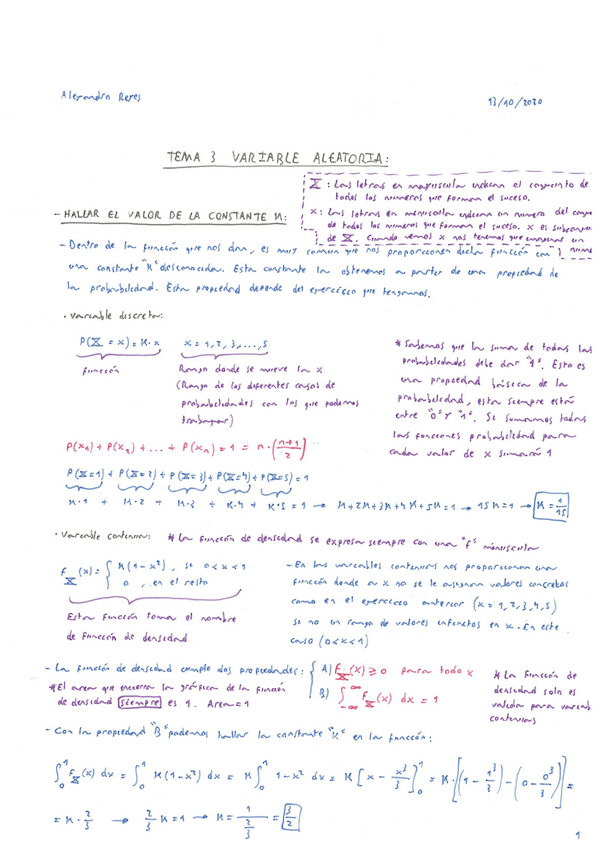 Alejandro Reyes
13/10/2020
TEMA 3 VARIABLE ALEATORIA:
X : Las letras en mayúscula indican el conjunto de
todos los números que forman el suceso.
x : Las letras en minúscula indican un número del
de todos los números que forman el suceso. x es
de X. Cuando vemos x nos tenemos que un
- HALLAR EL VALOR DE LA CONSTANTE K:
- Dentro de la función que nos dan, es muy común que nos proporcionen dicha función con
una constante "K" desconocida. Esta constante la obtenemos a partir de una propiedad de
la probabilidad. Esta propiedad depende del ejercicio que tengamos.
· Variable discreta:
P(X = x) = K · x x = 1, 2, 3, ..., 5
función
Rango donde se mueve la x
(Rango de los diferentes casos de
probabilidades con los que podemos
trabajar)
* Sabemos que la suma de todas las
probabilidades debe dar "1". Esto es
una propiedad básica de la
probabilidad, esta siempre está
entre "0" y "1". Si sumamos todas
las funciones probabilidad para
cada valor de x sumará 1
P(x1) + P(x2) + ... + P(xn) = 1 = n · (n+1/2)
P(X=1) + P(X=2) + P(X=3) + P(X=4) + P(X=5) = 1
K·1 + K·2 + K·3 + K·4 + K·5 = 1 → K+2K+3K+4K+5K=1 → 15K=1 → K=1/15
· Variable continua: * La función de densidad se expresa siempre con una "f" minúscula
fX(x) = { K(1-x²), si 0<x<1
0 , en el resto
Esta función toma el nombre
de función de densidad
- En las variables continuas nos proporcionan una
función donde a x no se le asignan valores concretos
como en el ejercicio anterior (x = 1, 2, 3, 4, 5)
si no un rango de valores infinitos en x. En este
caso (0<x<1)
- La función de densidad cumple dos propiedades: { A) fX(x) ≥ 0 para todo x
B) ∫ fX(x) dx = 1
* El area que encierra la gráfica de la función
de densidad siempre es 1. Area = 1
* La función de
densidad solo es
valida para
continuas
- Con la propiedad "B" podemos hallar la constante "K" en la función:
∫₀¹ fX(x) dx = ∫₀¹ K(1-x²) dx = K ∫₀¹ 1-x² dx = K [x - x³/3]₀¹ = K · [(1 - 1³/3) - (0 - 0³/3)] =
= K · 2/3 → 2/3 K = 1 → K = 1/(2/3) = 3/2
1